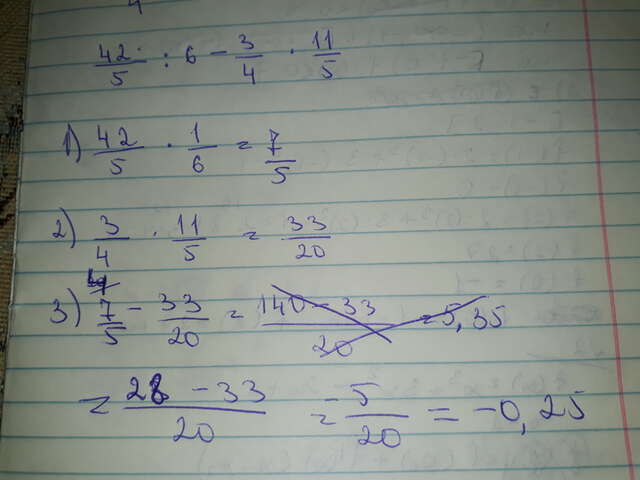 4
42/5 : 6 - 3/4 · 11/5
1) 42/5 · 1/6 = 7/5
2) 3/4 · 11/5 = 33/20
3) 4 7/5 - 33/20 = 140-33/20 = 5,35
= 28-33/20 = -5/20 = -0,25